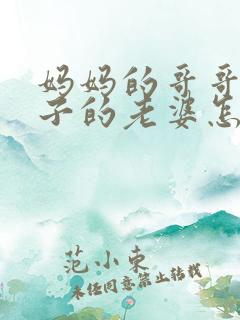 妈妈的哥哥
子的老婆怎
范小东
未经同意禁止转载